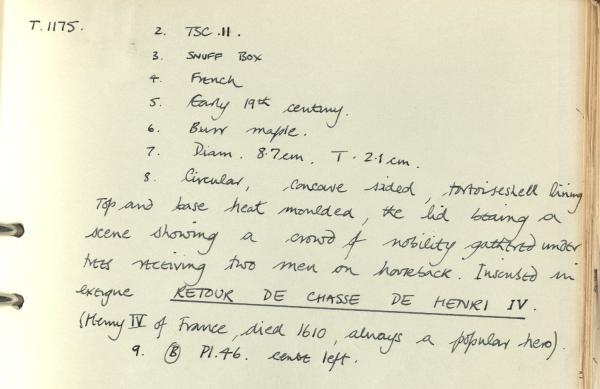 T.1175. 2. TSC.11.
3. SNUFF BOX
4. French
5. Early 19th century.
6. Burr maple.
7. Diam. 8.7cm. T. 2.1cm.
8. Circular, concave sided, tortoiseshell lining
Top and base heat moulded, the lid bearing a
scene showing a crowd of nobility gathered under
trees receiving two men on horseback. Inscribed in
exergue RETOUR DE CHASSE DE HENRI IV.
(Henry IV of France, died 1610, always a popular hero).
9. B Pl.46. centre left.